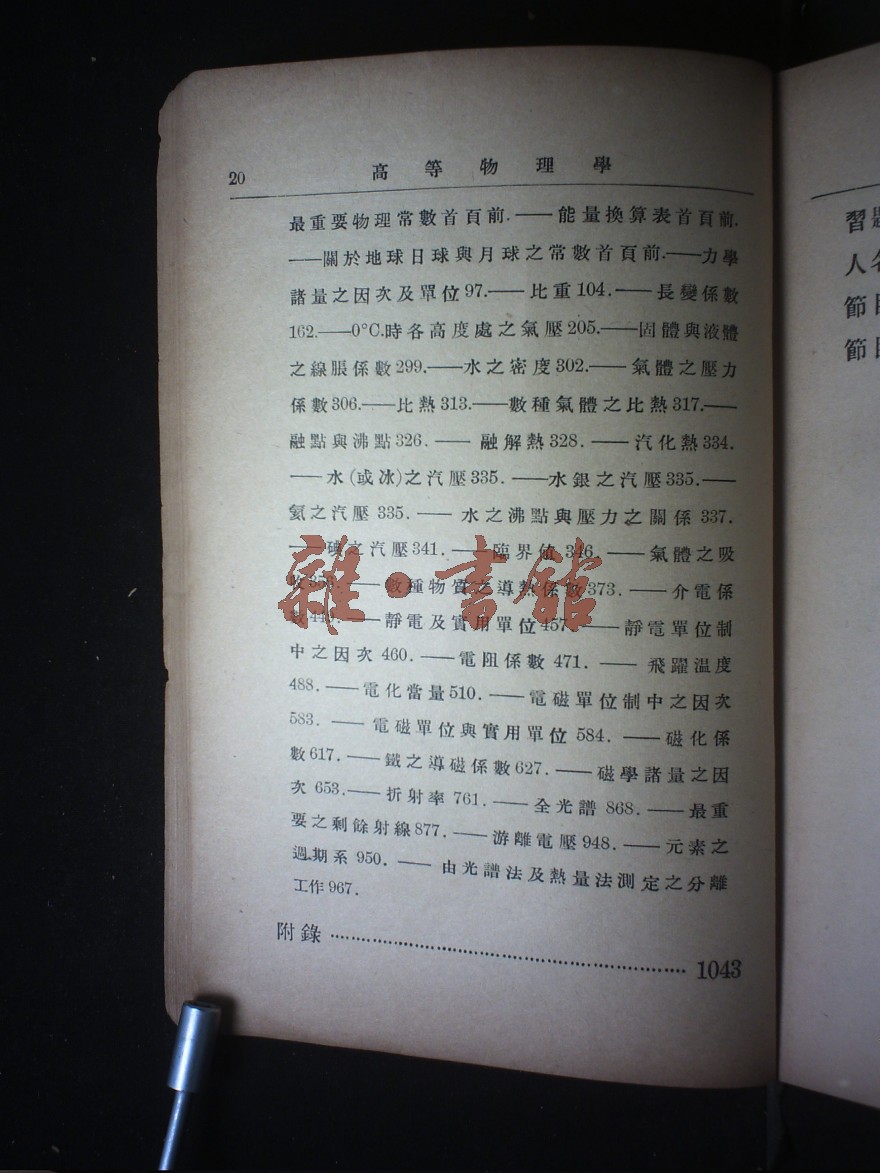 20 高等物理學
最重要物理常數首頁前.——能量換算表首頁前.
——關於地球日球與月球之常數首頁前.——力學
諸量之因次及單位97.——比重104.——長變係數
162.——0°C.時各高度處之氣壓205.——固體與液體
之線脹係數299.——水之密度302.——氣體之壓力
係數306.——比熱313.——數種氣體之比熱317.——
融點與沸點326.——融解熱328.——汽化熱334.
——水(或冰)之汽壓335.——水銀之汽壓335.——
氦之汽壓335.——水之沸點與壓力之關係337.
——碘之汽壓341.——臨界值346.——氣體之吸
收353.——數種物質之導熱係數373.——介電係
數449.——靜電及實用單位457.——靜電單位制
中之因次460.——電阻係數471.——飛躍温度
488.——電化當量510.——電磁單位制中之因次
583.——電磁單位與實用單位584.——磁化係
數617.——鐵之導磁係數627.——磁學諸量之因
次653.——折射率761.——全光譜868.——最重
要之剩餘射線877.——游離電壓948.——元素之
週期系950.——由光譜法及熱量法測定之分離
工作967.
附錄 1043
雜·書館
習題
人名
節目
節目